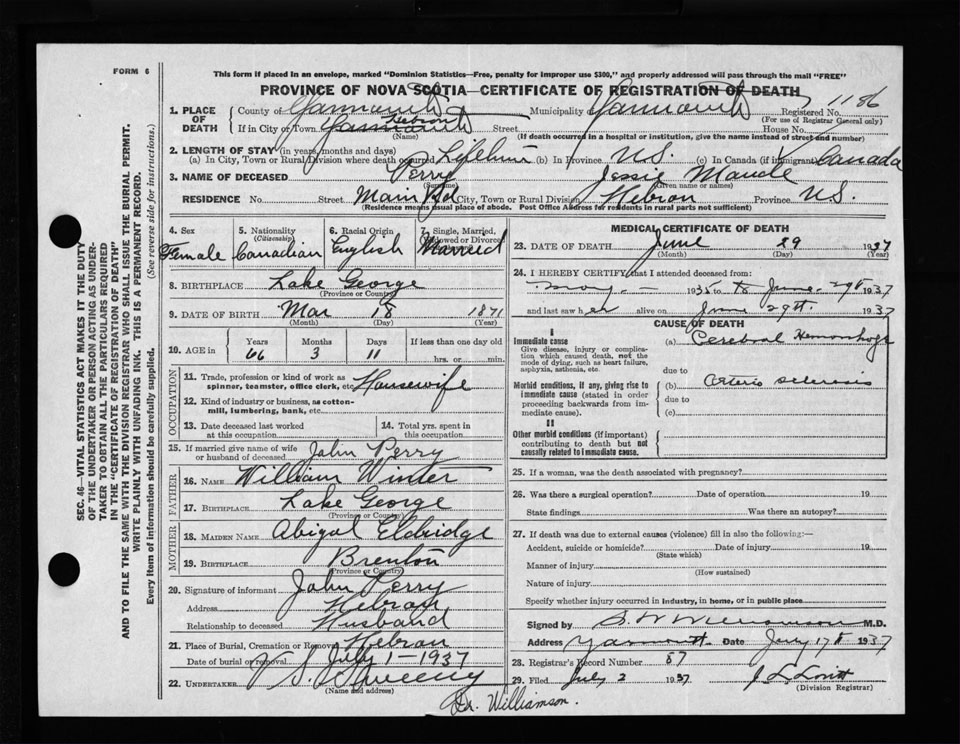 FORM 6
This form if placed in an envelope, marked "Dominion Statistics—Free, penalty for improper use $300," and properly addressed will pass through the mail "FREE"
PROVINCE OF NOVA SCOTIA—CERTIFICATE OF REGISTRATION OF DEATH
1. PLACE OF DEATH County of Yarmouth Municipality of Yarmouth Registered No. 1186
(For use of Registrar General only)
Hebron
If in City or Town Yarmouth Street House No.
(Name) (If death occurred in a hospital or institution, give the name instead of street and number)
2. LENGTH OF STAY (in years, months and days)
(a) In City, Town or Rural Division where death occurred Lifetime (b) In Province N.S. (c) In Canada (if immigrant) Canada
3. NAME OF DECEASED Perry Jessie Maude
(Surname) (Given name or names)
RESIDENCE No. Street Main Rd. City, Town or Rural Division Hebron Province N.S.
(Residence means usual place of abode. Post Office Address for residents in rural parts not sufficient)
4. Sex 5. Nationality (Citizenship) 6. Racial Origin 7. Single, Married, Widowed or Divorced
Female Canadian English Married
8. BIRTHPLACE Lake George
(Province or Country)
9. DATE OF BIRTH Mar 18 1871
(Month) (Day) (Year)
10. AGE in Years Months Days If less than one day old
66 3 11 hrs. or min.
OCCUPATION
11. Trade, profession or kind of work as spinner, teamster, office clerk, etc. Housewife
12. Kind of industry or business, as cotton-mill, lumbering, bank, etc.
13. Date deceased last worked at this occupation 14. Total yrs. spent in this occupation
15. If married give name of wife or husband of deceased John Perry
FATHER
16. NAME William Winter
17. BIRTHPLACE Lake George
(Province or Country)
MOTHER
18. MAIDEN NAME Abigal Eldridge
19. BIRTHPLACE Brenton
(Province or Country)
20. Signature of informant John Perry
Address Hebron
Relationship to deceased Husband
21. Place of Burial, Cremation or Removal Hebron
Date of burial or removal July 1—1937
22. UNDERTAKER V.S. Sweeny
(Name and address)
Dr. Williamson.
MEDICAL CERTIFICATE OF DEATH
23. DATE OF DEATH June 29 1937
(Month) (Day) (Year)
24. I HEREBY CERTIFY that I attended deceased from:
May — 1935 to June 29th 1937
and last saw her alive on June 29th 1937
CAUSE OF DEATH
I
Immediate cause (a) Cerebral Hemorrhage
Give disease, injury or complication which caused death, not the mode of dying, such as heart failure, asphyxia, asthenia, etc.
due to
Morbid conditions, if any, giving rise to immediate cause (stated in order proceeding backwards from immediate cause). (b) Arterio sclerosis
due to
(c)
II
Other morbid conditions (if important) contributing to death but not causally related to immediate cause.
25. If a woman, was the death associated with pregnancy?
26. Was there a surgical operation? Date of operation 19
State findings Was there an autopsy?
27. If death was due to external causes (violence) fill in also the following:—
Accident, suicide or homicide? Date of injury 19
(State which)
Manner of injury
(How sustained)
Nature of injury
Specify whether injury occurred in industry, in home, or in public place
Signed by M.D.
Address Yarmouth Date 1937
28. Registrar's Record Number 87
29. Filed July 2 1937
(Division Registrar)
SEC. 46—VITAL STATISTICS ACT MAKES IT THE DUTY
OF THE UNDERTAKER OR PERSON ACTING AS UNDER-
TAKER TO OBTAIN ALL THE PARTICULARS REQUIRED
IN THE "CERTIFICATE OF REGISTRATION OF DEATH"
AND TO FILE THE SAME WITH THE DIVISION REGISTRAR WHO SHALL ISSUE THE BURIAL PERMIT.
WRITE PLAINLY WITH UNFADING INK. THIS IS A PERMANENT RECORD.
Every item of information should be carefully supplied. (See reverse side for instructions.)